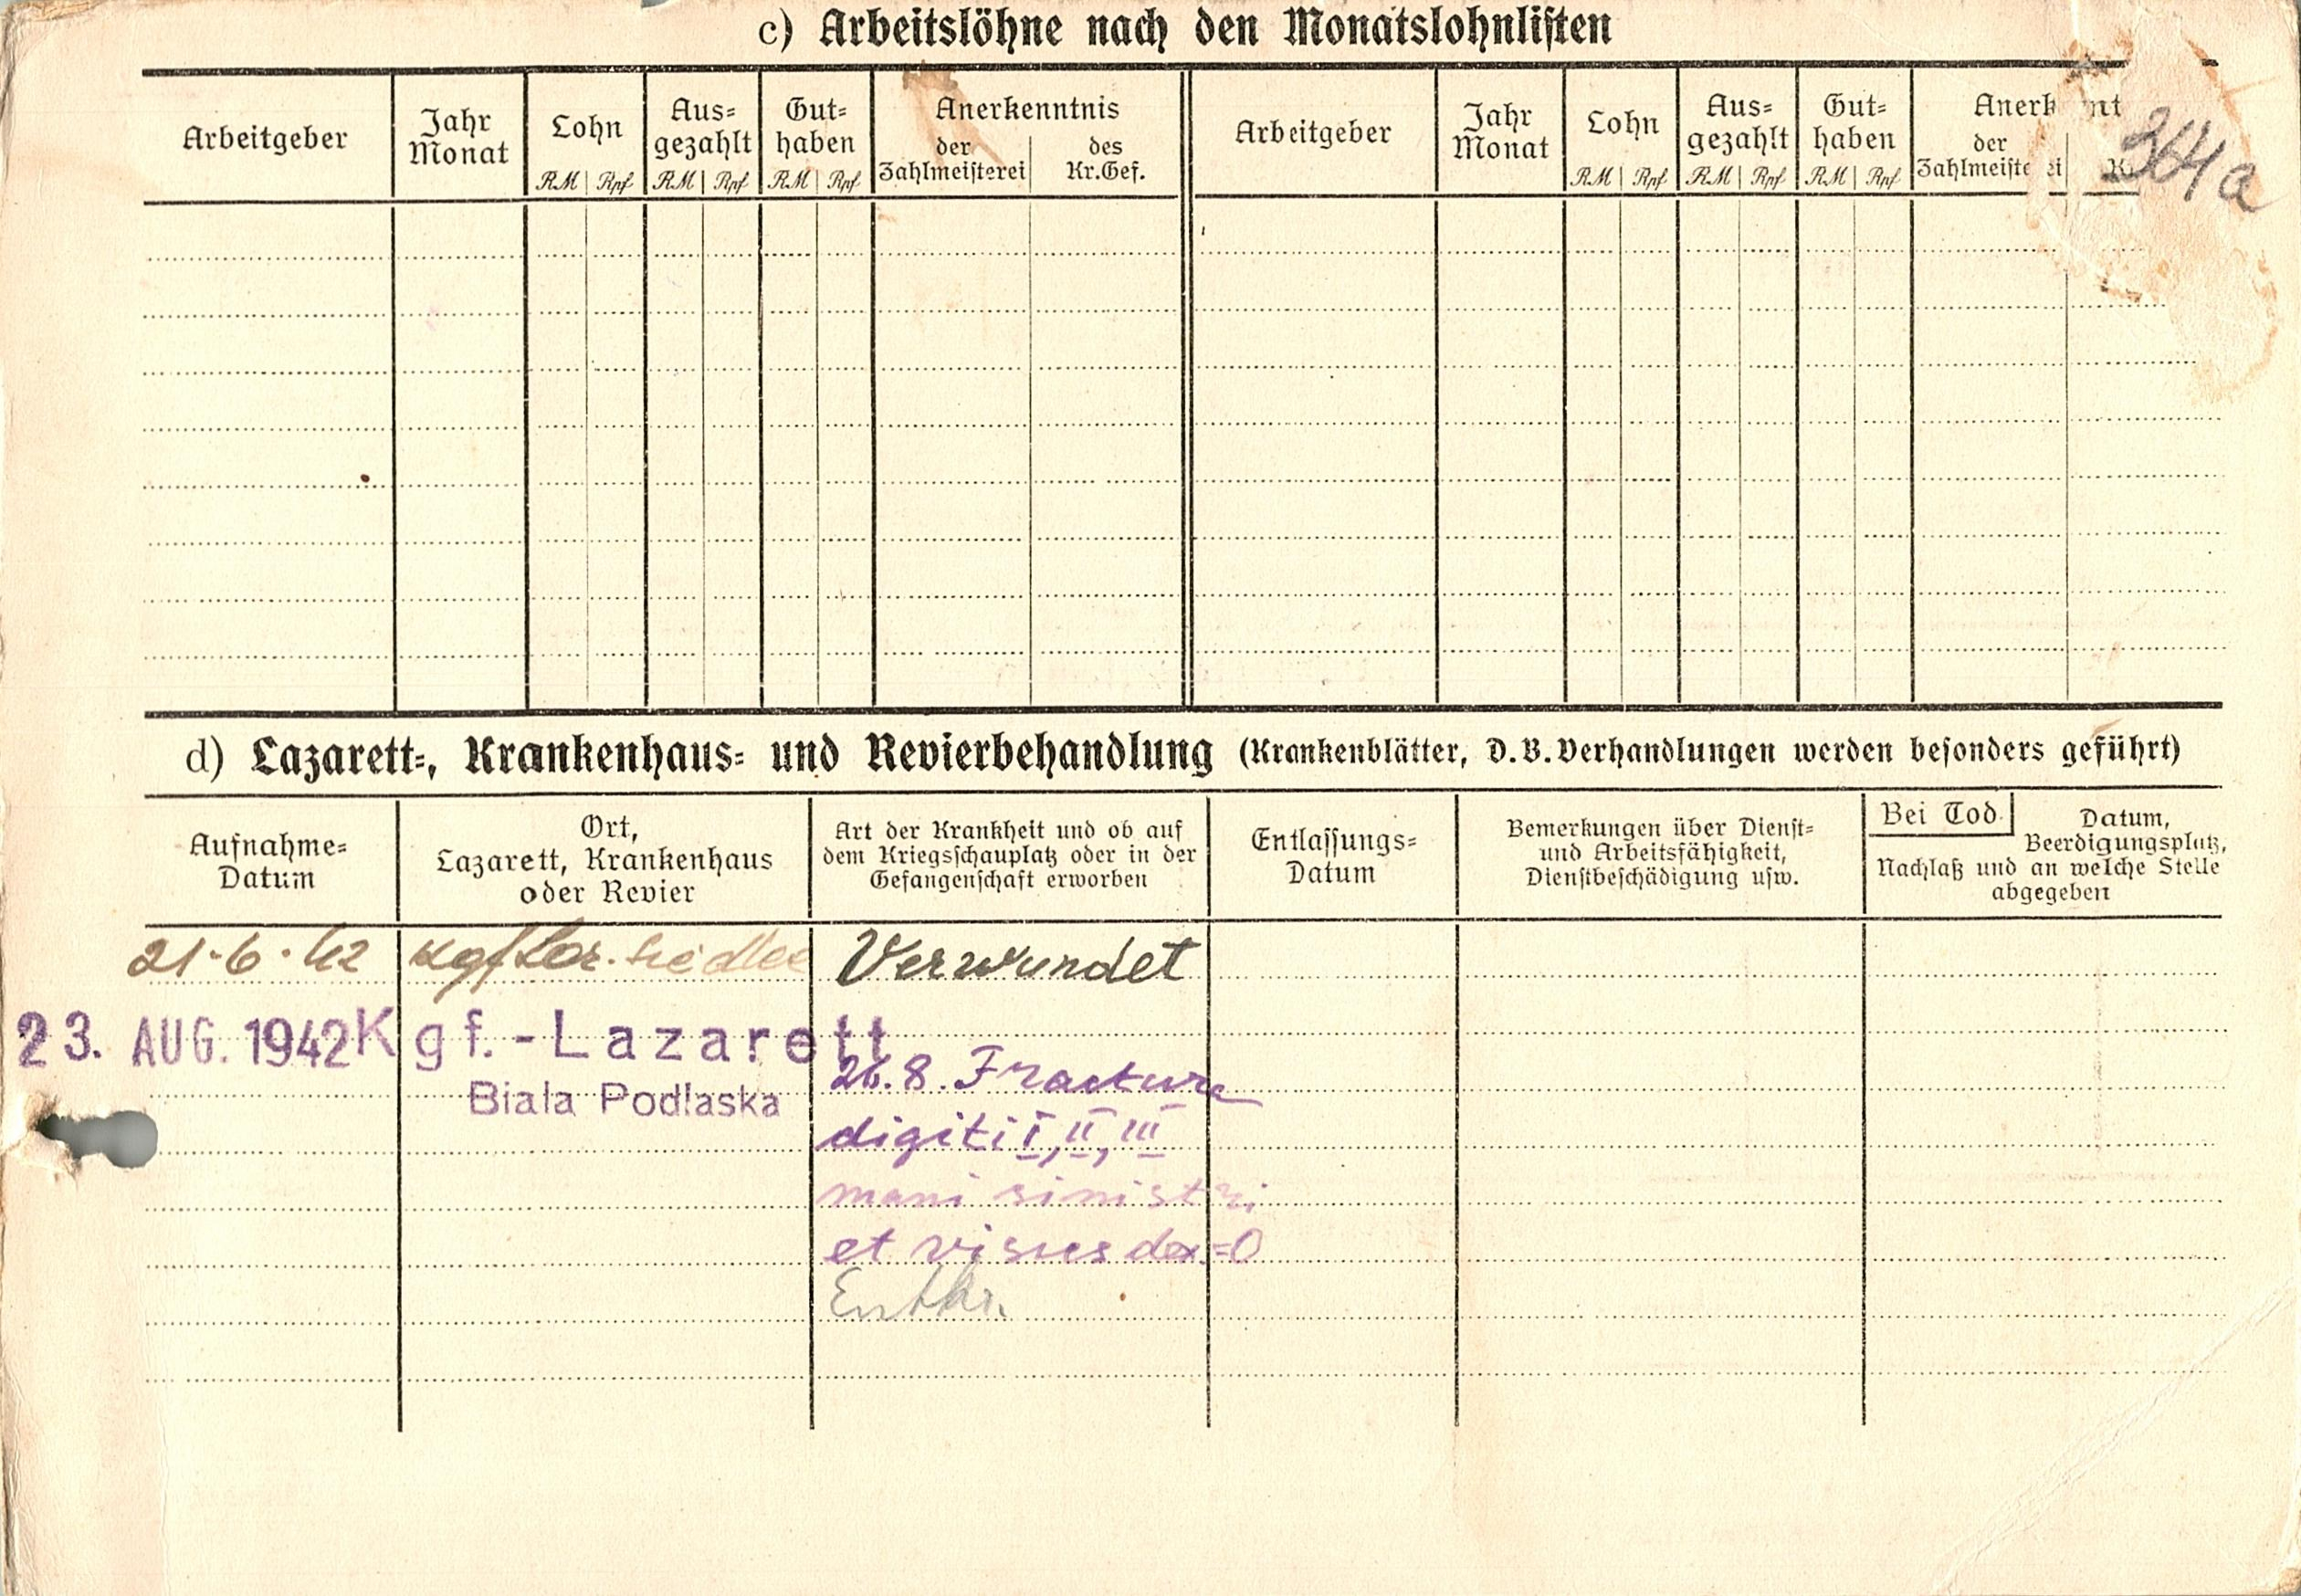 c) Arbeitslöhne nach den Monatslohnlisten
Arbeitgeber
Jahr
Monat
Lohn
RM Rpf
Aus=
gezahlt
RM Rpf
Gut=
haben
RM Rpf
Anerkenntnis
der
Zahlmeisterei
des
Kr.Gef.
Arbeitgeber
Jahr
Monat
Lohn
RM Rpf
Aus=
gezahlt
RM Rpf
Gut=
haben
RM Rpf
der
364a
d) Lazarett=, Krankenhaus= und Revierbehandlung (Krankenblätter, D.B.Verhandlungen werden besonders geführt)
Aufnahme=
Datum
Ort,
Lazarett, Krankenhaus
oder Revier
Art der Krankheit und ob auf
dem Kriegsschauplatz oder in der
Gefangenschaft erworben
Entlassungs=
Datum
Bemerkungen über Dienst=
und Arbeitsfähigkeit,
Dienstbeschädigung usw.
Bei Tod
Datum,
Beerdigungsplatz,
Nachlaß und an welche Stelle
abgegeben
21.6.42 Verwundet
23. AUG. 1942 Kgf.-Lazarett
Biala Podlaska
26.8. Fracture
digiti I, II, III
mani sinistri
et visus dex.=0